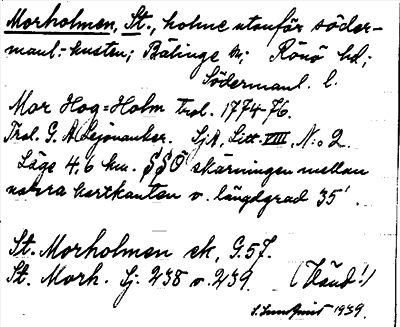 Morholmen, St., holme utanför söder-
manl.-kusten; Bälinge sn; Rönö hd;
Södermanl. l.
Mor Hog=Holm trol. 1774-76.
Trol. G. A. Lejonanker. SjA, Litt. VIII, N:o 2.
Läge 4,6 km. SSÖ skärningen mellan
norra kartkanten o. längdgrad 35'.
St. Morholmen ek. G.57.
St. Morh. Sj. 238 o. 239. (Vänd!)
1939.